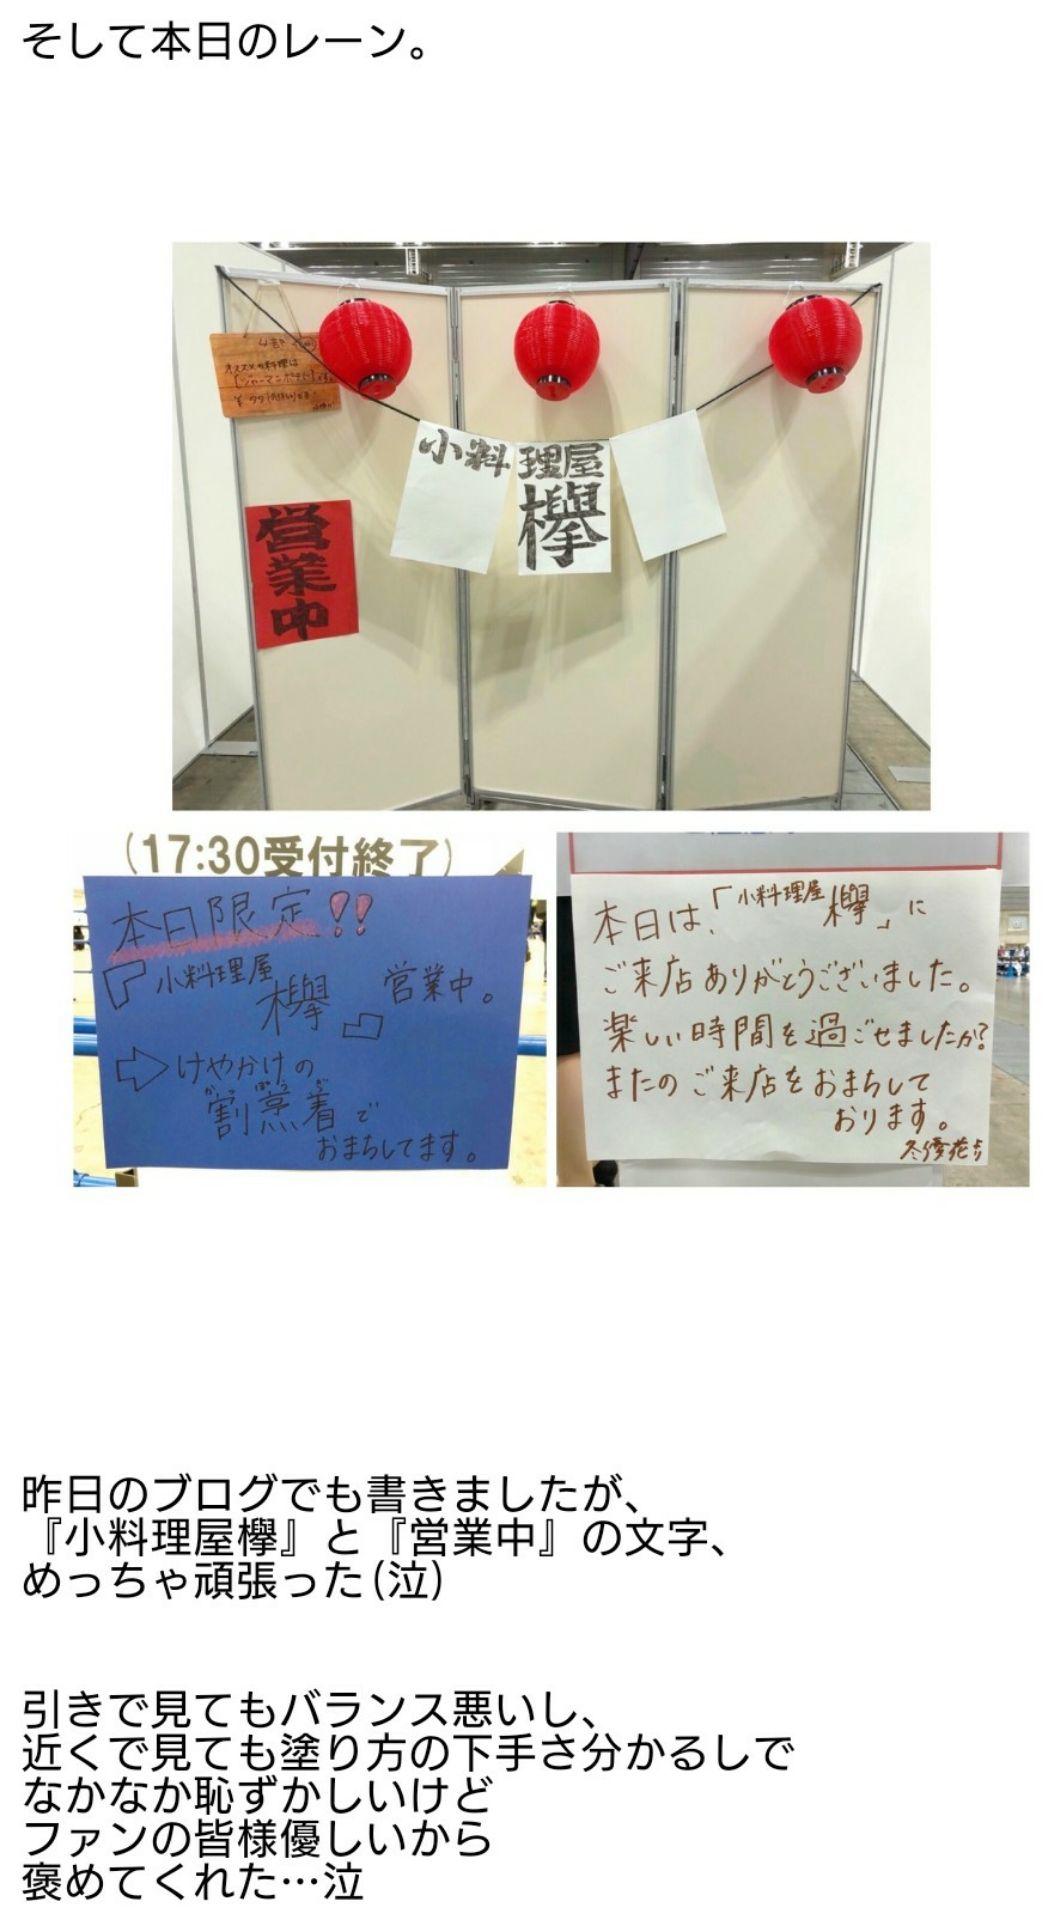 そして本日のレーン。
オススメの料理は
小料理屋
欅
営業中
(17:30受付終了)
本日限定!!
『小料理屋
欅』営業中。
⇨けやかけの
かっぽうぎ
割烹着で
おまちしてます。
本日は、「小料理屋欅」に
ご来店ありがとうございました。
楽しい時間を過ごせましたか?
またのご来店をおまちして
おります。
冬優花より
昨日のブログでも書きましたが、
『小料理屋欅』と『営業中』の文字、
めっちゃ頑張った(泣)
引きで見てもバランス悪いし、
近くで見ても塗り方の下手さ分かるしで
なかなか恥ずかしいけど
ファンの皆様優しいから
褒めてくれた…泣